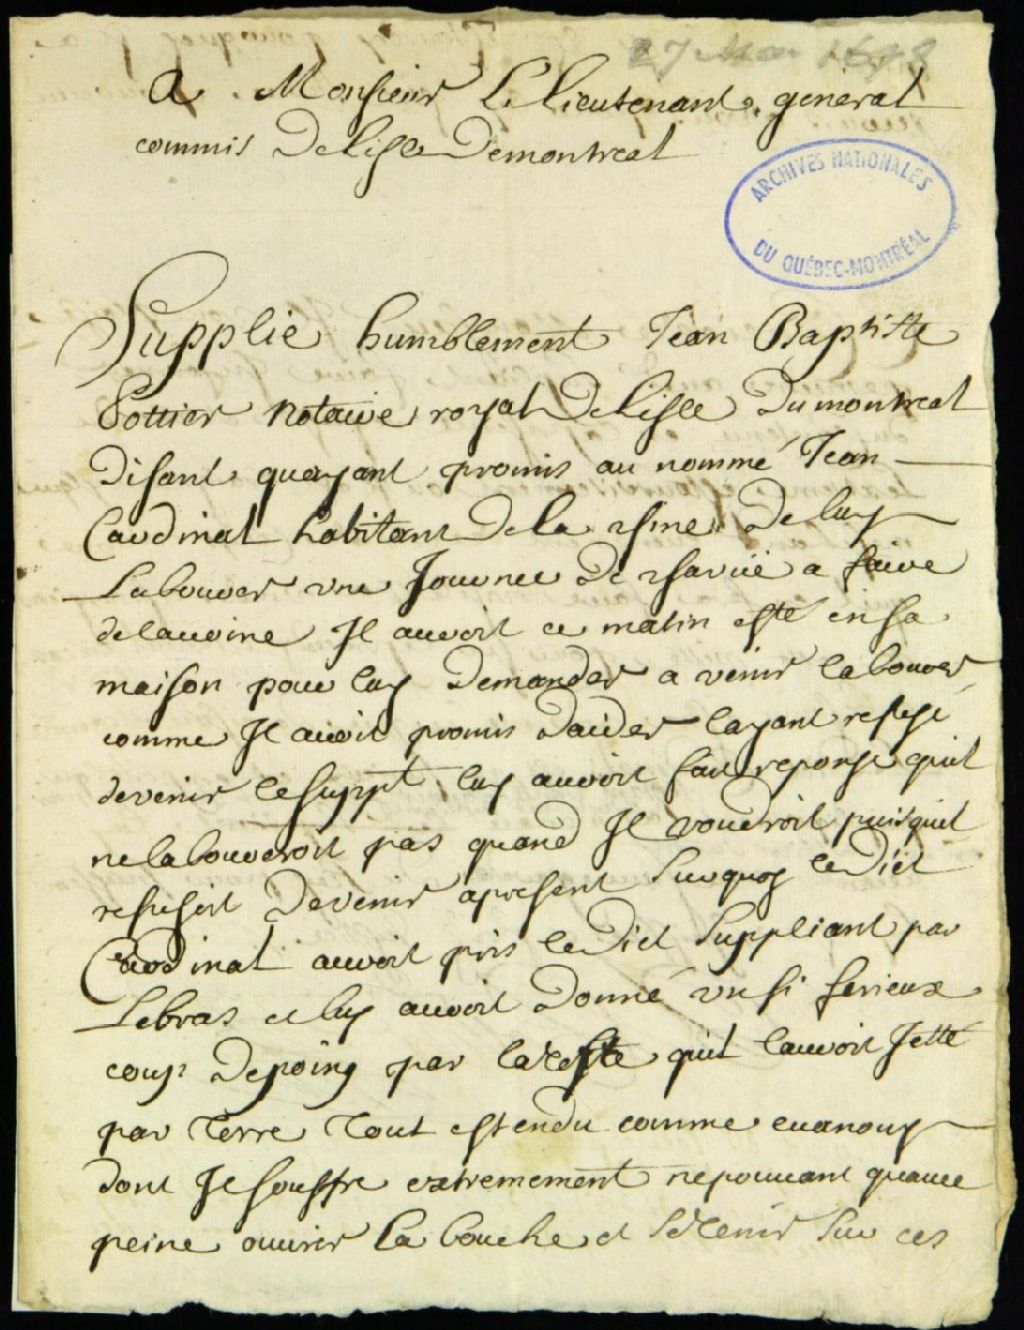 27 Mai 1698
A Monsieur Le lieutenant general
commis De lisle Demontreal
ARCHIVES NATIONALES
DU QUÉBEC-MONTRÉAL
Supplie humblement Jean Baptiste
Pottier notaire royal De lisle Dumontreal
Disant quayant promis au nommé Jean
Cardinal habitant De la chine De luy
Labourer une Journee De charuë a faire
delavoine Il auroit ce matin esté en sa
maison pour luy Demander a venir labourer
comme Il auoit promis Daider layant refusé
devenir le suppt luy auroit fait reponse quil
nelaboureroit pas quand Il voudroit puisquil
refusoit Devenir apresent surquoy le Dict
Cardinal auroit pris le Dict Suppliant par
Lebras et luy auroit Donné un si serieux
coup Depoing par la teste quil lauroit Jetté
par terre tout estendu comme euanouy
dont Il souffre extremement nepouuant quauec
peine ouurir La bouche et setenir sur ces